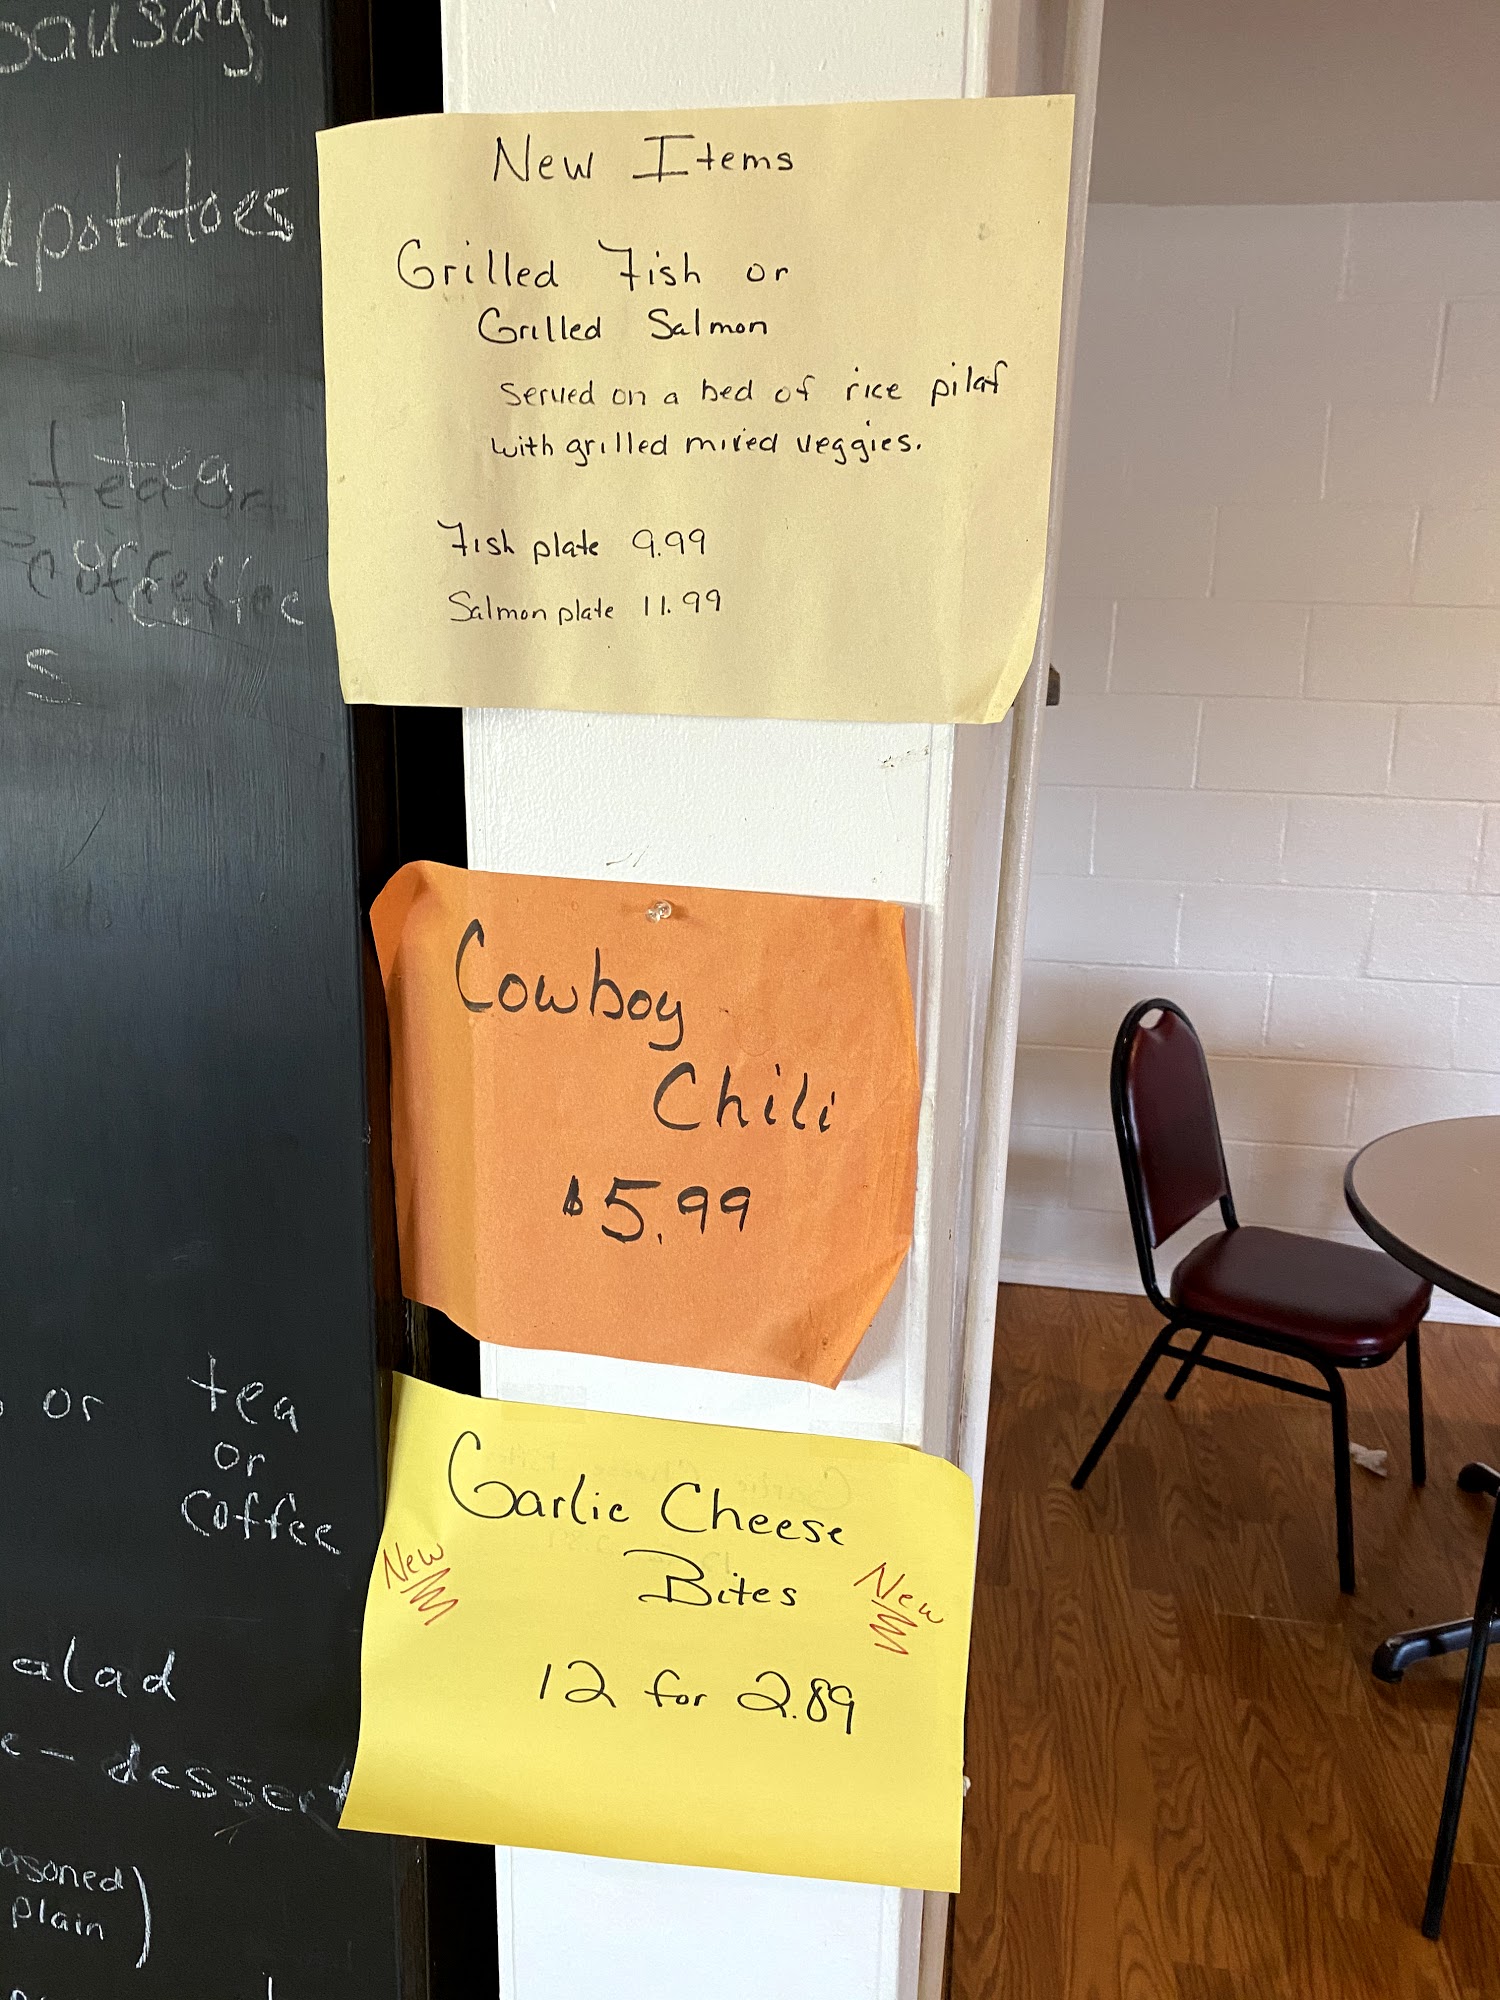 potatoes
tea
coffee
s
or tea
or
coffee
dessert
plain
New Items
Grilled Fish or
Grilled Salmon
served on a bed of rice pilaf
with grilled mixed veggies.
Fish plate 9.99
Salmon plate 11.99
Cowboy
Chili
$5.99
Garlic Cheese
Bites
New
New
12 for 2.89